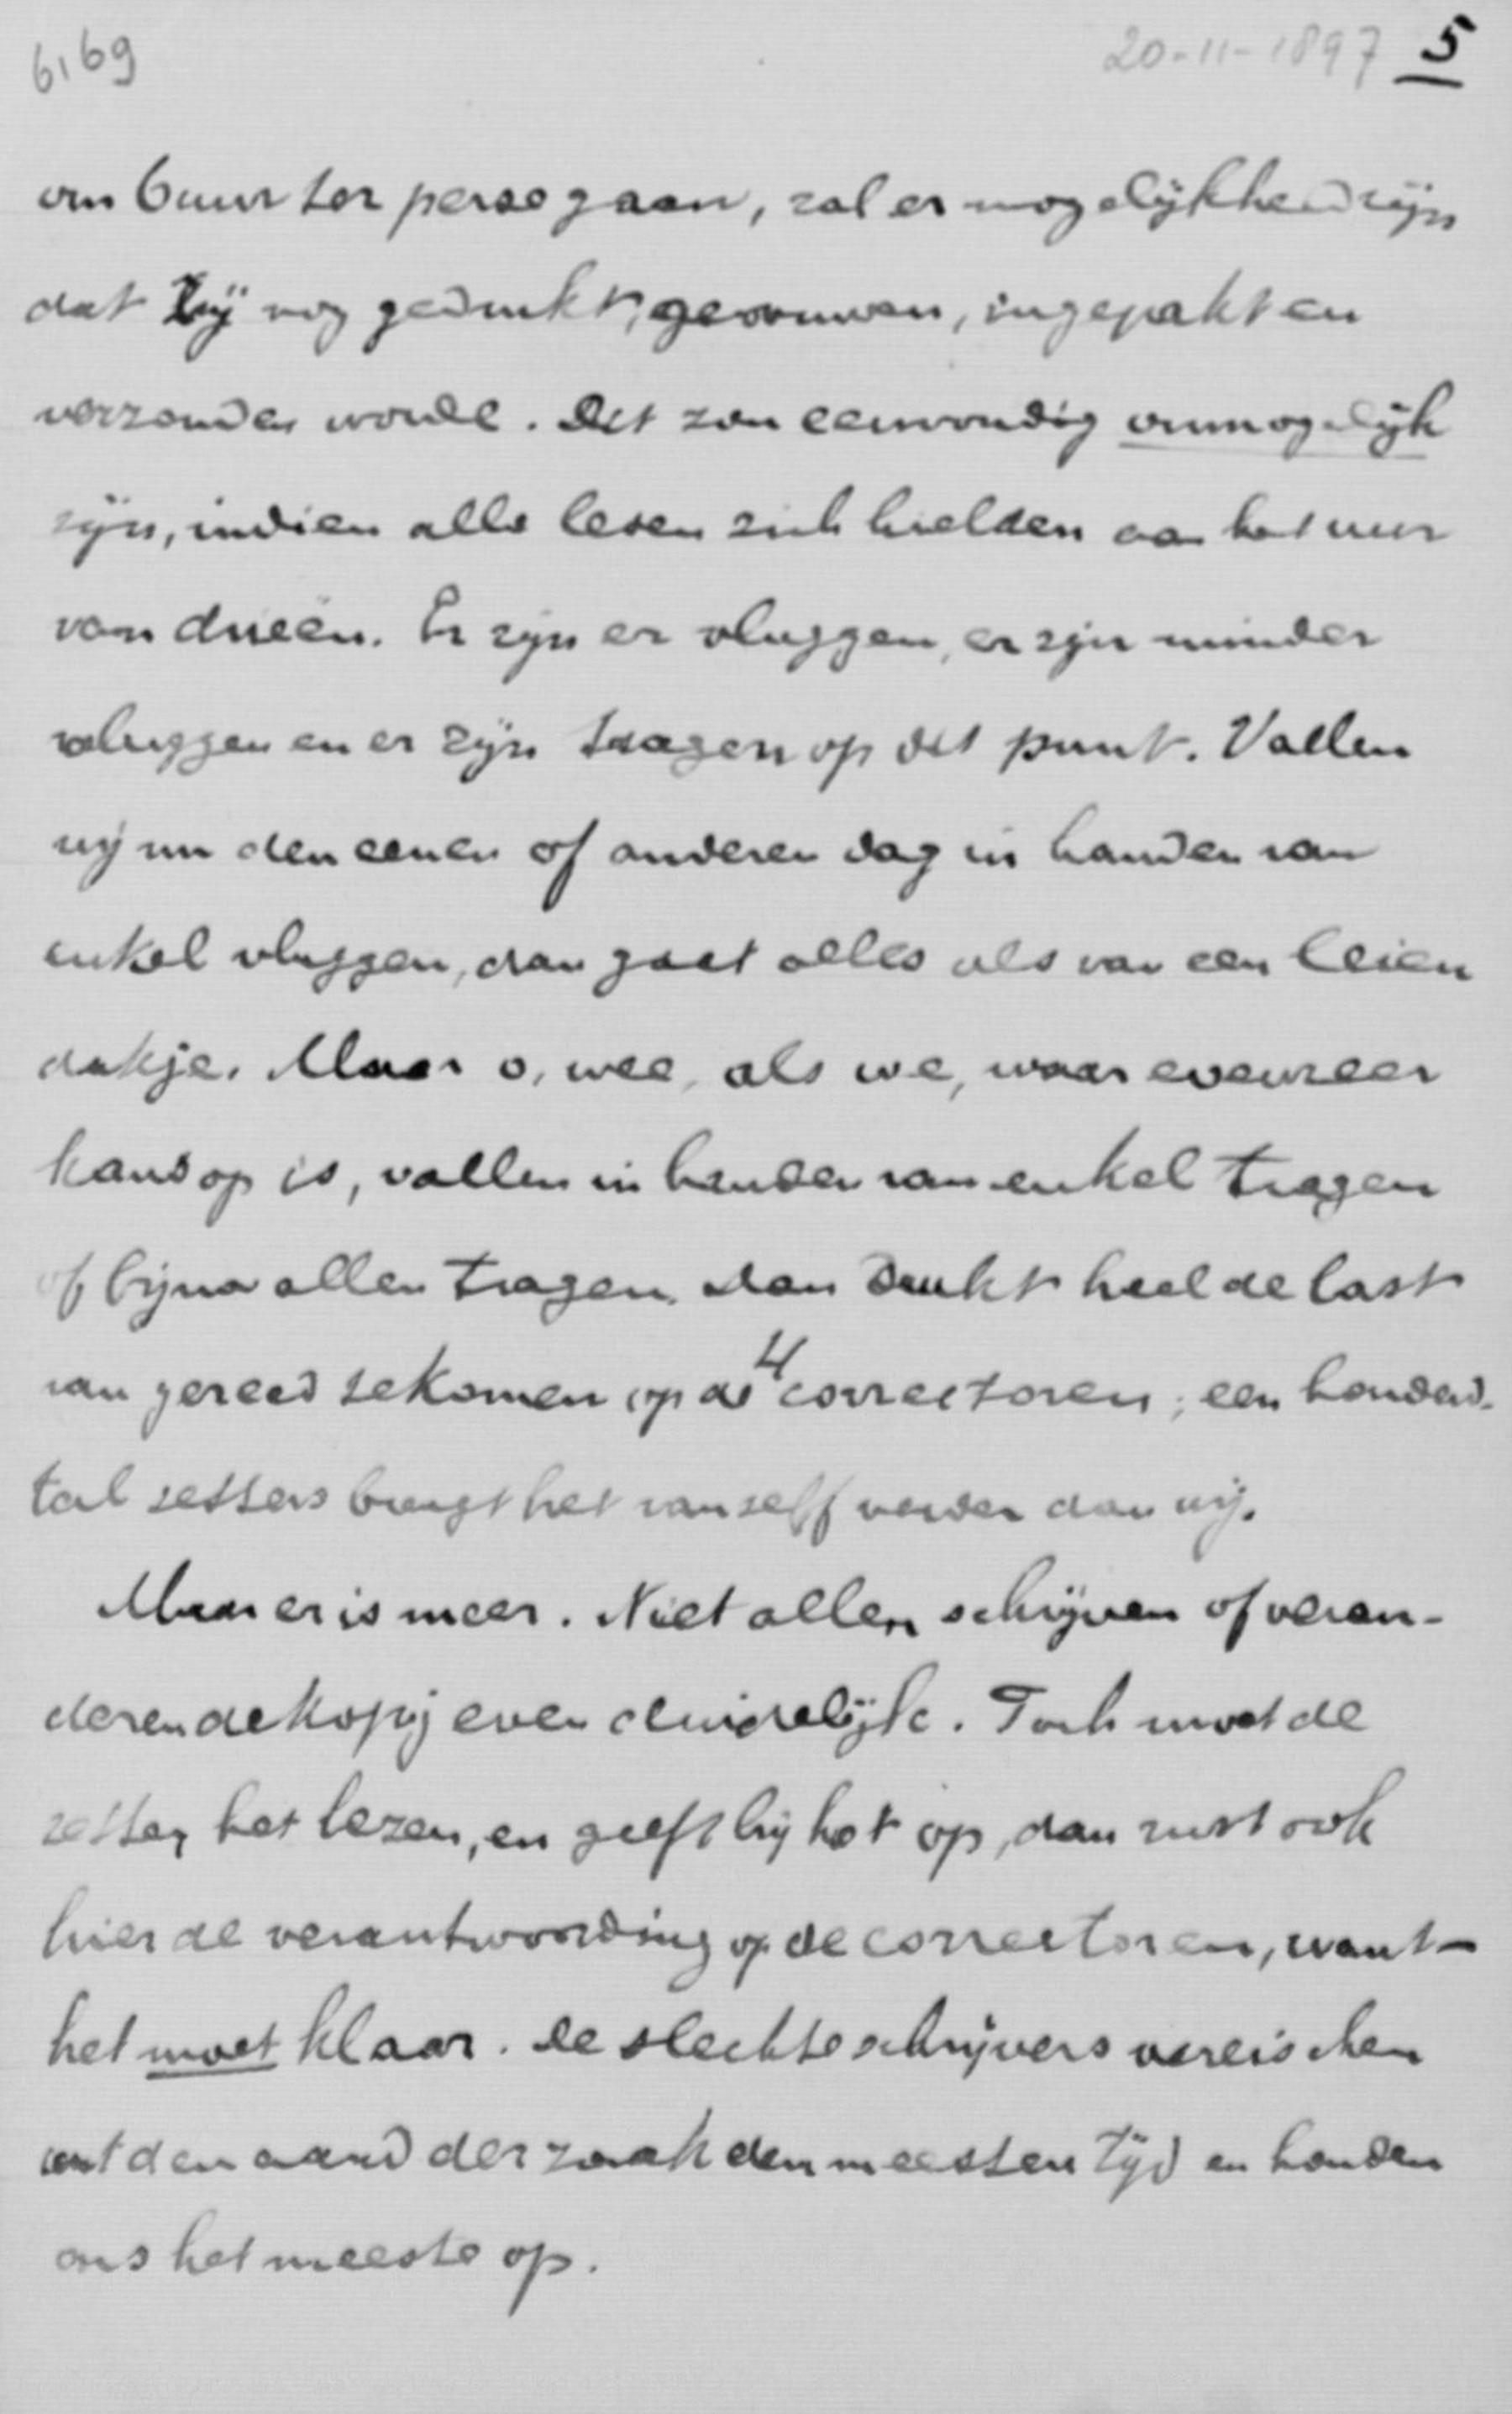 6,69
20-11-1897 5
om 6 uur ter perse gaan, zal er mogelijkheid zijn
dat zij nog gedrukt, gevouwen, ingepakt en
verzonden worde. Dit zou eenvoudig onmogelijk
zijn, indien alle leden zich hielden aan het uur
van drieën. Er zijn er vluggen, er zijn minder
vluggen en er zijn tragen op dit punt. Vallen
wij nu den eenen of anderen dag in handen van
enkel vluggen, dan gaat alles als van een leien
dakje. Maar o, wee, als we, waar evenzeer
kans op is, vallen in handen van enkel tragen
of bijna allen tragen. Dan drukt heel de last
van gereed te komen op de 4 correctoren; een honderd-
tal zetters brengt het vanzelf verder dan wij.
Maar er is meer. Niet allen schrijven of veran-
deren de kopij even duidelijk. Toch moet de
zetter het lezen, en geeft hij het op, dan rust ook
hier de verantwoording op de correctoren, want -
het moet klaar. De slechte schrijvers vereischen
uit den aard der zaak den meesten tijd en houden
ons het meeste op.